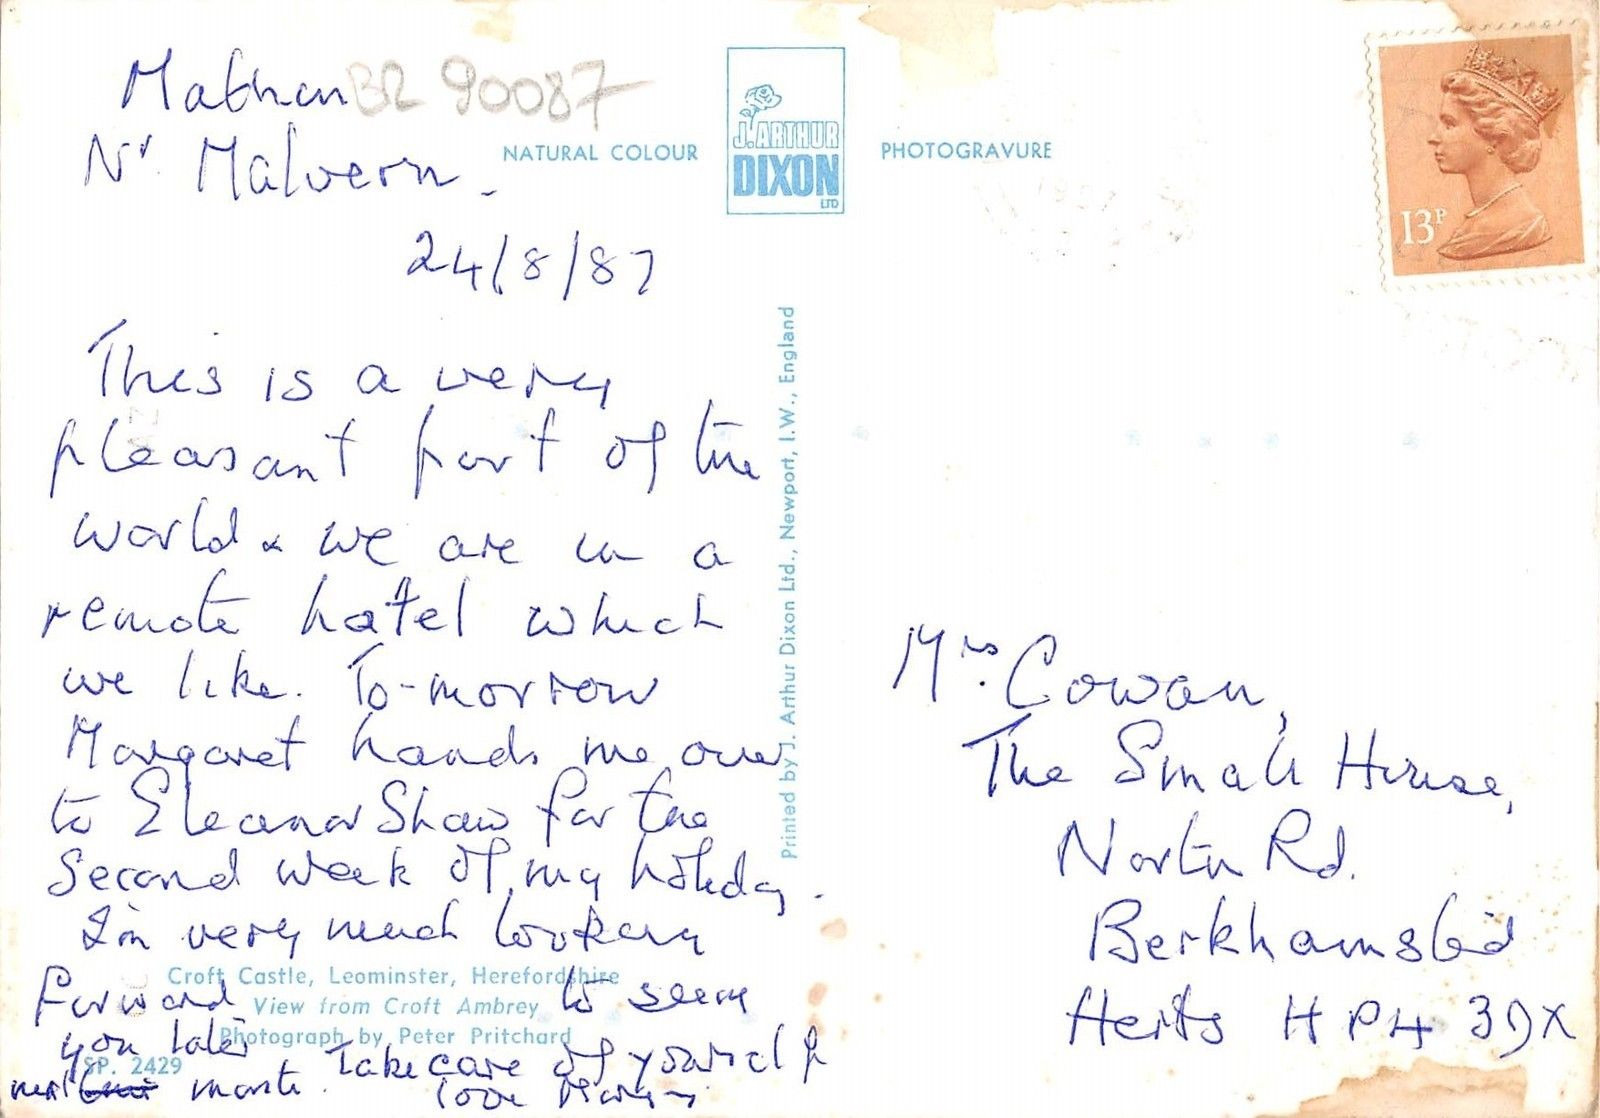 Mathon
BR 90087
Nr. Malvern.
24/8/87
This is a very
pleasant part of the
world & we are in a
remote hotel which
we like. To-morrow
Margaret hands me over
to Eleanor Shaw for the
second week of my holiday.
I'm very much looking
forward to seeing
you later
next month. Take care of yourself &
love
Croft Castle, Leominster, Herefordshire
View from Croft Ambrey
Photograph by Peter Pritchard
SP. 2429
NATURAL COLOUR
J. ARTHUR
DIXON
LTD
PHOTOGRAVURE
Printed by J. Arthur Dixon Ltd., Newport, I.W., England
13P
Mrs. Cowan,
The Small House,
North Rd.
Berkhamsted
Herts HP4 3DX